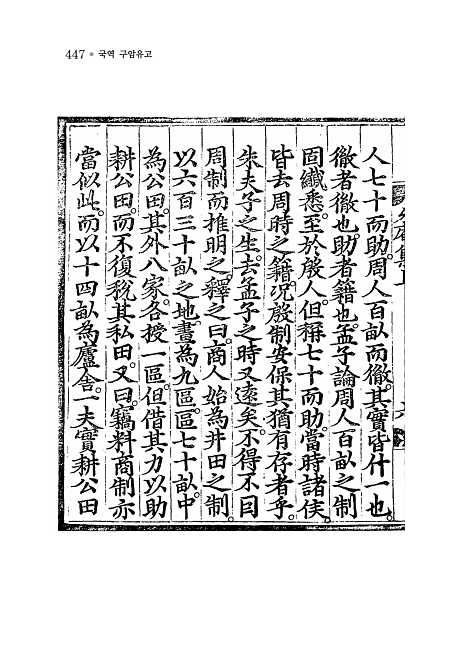 447 ● 국역 구암유고
人七十而助。周人百畝而徹。其實皆什一也。
徹者徹也。助者籍也。孟子論周人百畝之制
固纖悉。至於殷人。但稱七十而助。當時諸侯。
皆去周時之籍。況殷制安保其猶有存者乎。
朱夫子之生。去孟子之時又遠矣。不得不因
周制而推明之。釋之曰。商人始為井田之制。
以六百三十畝之地。畫為九區。區七十畝。中
為公田。其外八家。各授一區。但借其力以助
耕公田。而不復稅其私田。又曰。竊料商制亦
當似此。而以十四畝為廬舍。一夫實耕公田